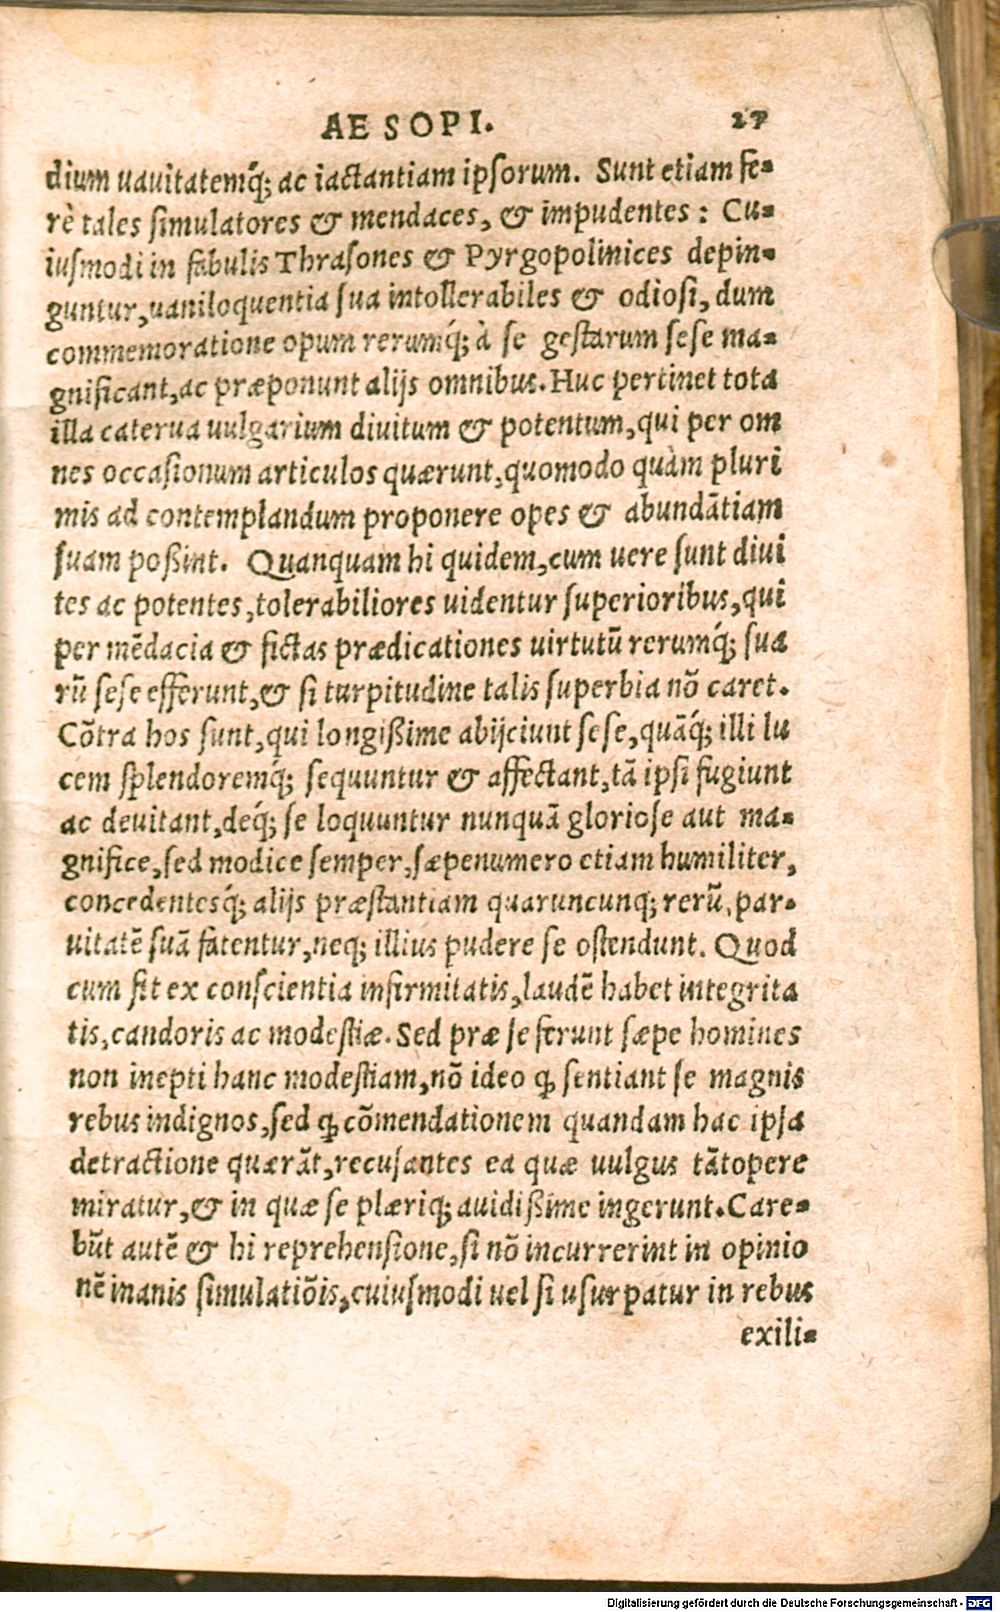 AESOPI. 27
dium uauitatemq́; ac iactantiam ipsorum. Sunt etiam fe-
rè tales simulatores & mendaces, & impudentes: Cu-
iusmodi in fabulis Thrasones & Pyrgopolinices depin-
guntur, uaniloquentia sua intollerabiles & odiosi, dum
commemoratione opum rerumq́; à se gestarum sese ma-
gnificant, ac præponunt alijs omnibus. Huc pertinet tota
illa caterua uulgarium diuitum & potentum, qui per om
nes occasionum articulos quærunt, quomodo quàm pluri
mis ad contemplandum proponere opes & abundãtiam
suam poßint. Quanquam hi quidem, cum uere sunt diui
tes ac potentes, tolerabiliores uidentur superioribus, qui
per mẽdacia & fictas prædicationes uirtutũ rerumq́; sua
rũ sese efferunt, & si turpitudine talis superbia nõ caret.
Cõtra hos sunt, qui longißime abijciunt sese, quãq́; illi lu
cem splendoremq́; sequuntur & affectant, tã ipsi fugiunt
ac deuitant, deq́; se loquuntur nunquã gloriose aut ma-
gnifice, sed modice semper, sæpenumero etiam humiliter,
concedentesq́; alijs præstantiam quaruncunq; rerũ, par-
uitatẽ suã fatentur, neq; illius pudere se ostendunt. Quod
cum fit ex conscientia infirmitatis, laudẽ habet integrita
tis, candoris ac modestiæ. Sed præ se ferunt sæpe homines
non inepti hanc modestiam, nõ ideo ꝙ sentiant se magnis
rebus indignos, sed ꝙ cõmendationem quandam hac ipsa
detractione quærãt, recusantes ea quæ uulgus tãtopere
miratur, & in quæ se plæriq; auidißime ingerunt. Care-
bũt autẽ & hi reprehensione, si nõ incurrerint in opinio
nẽ inanis simulatiõis, cuiusmodi uel si usurpatur in rebus
exili-
Digitalisierung gefördert durch die Deutsche Forschungsgemeinschaft - DFG